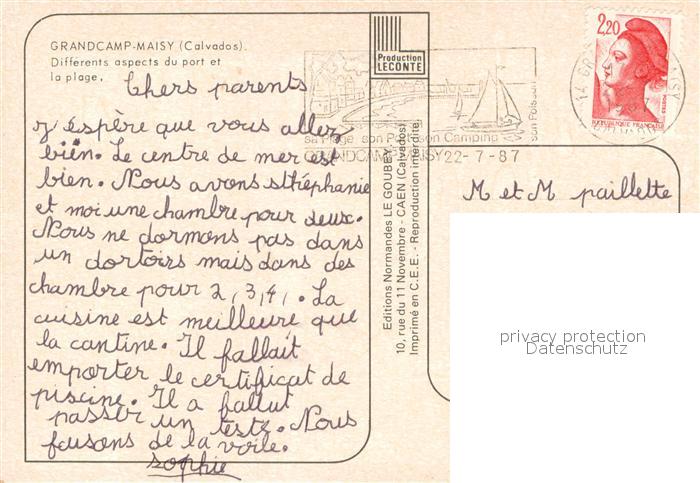 GRANDCAMP-MAISY (Calvados).
Différents aspects du port et
la plage.
Chers parents
J'espère que vous allez
bien. Le centre de mer est
bien. Nous avons stéphanie
et moi une chambre pour deux.
Nous ne dormons pas dans
un dortoirs mais dans des
chambre pour 2, 3, 4, . La
cuisine est meilleure que
la cantine. Il fallait
emporter le certificat de
piscine. Il a fallut
passer un teste. Nous
faisons de la voile.
sophie
Production
LECONTE
2,20
REPUBLIQUE FRANCAISE
sa Plage son Port son Camping
son Poisson
GRANDCAMP MAISY 22-7-87
Editions Normandes LE GOUBEY
10, rue du 11 Novembre - CAEN (Calvados)
Imprimé en C.E.E. - Reproduction interdite.
M et M paillette
privacy protection
Datenschutz